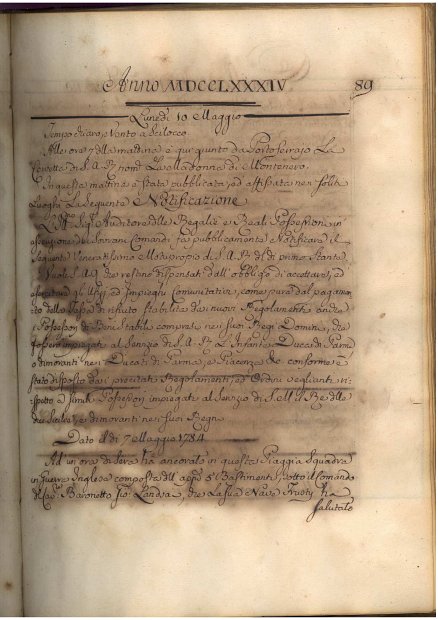 Anno MDCCLXXXIV
89
Lunedì 10 Maggio
Tempo chiaro, e Vento a Scilocco
Alle ore 7 della mattina è qui giunto da Portoferrajo La
Corvetta di S. A. R. nom.ta La Madonna di Montenero.
In questa mattina è stata pubblicata, ed affissata nei soliti
Luoghi La seguente Notificazione
Auditore delle Regalie e Reali Possessioni in
dei Sovrani Comandi fa pubblicamente Notificare il
seguente Venerat.mo Motuproprio di S. A. R. del dì primo Stante
S. A. R. che restino dispensati dall'obbligo di accettare, ed
esercitare gli Ufizj, ed Impieghi Comunitativi, come pure dal pagamen-
to delle Tasse di rifiuto stabilite dai nuovi Regolamenti anche
i Possessori di Beni Stabili compresi nei suoi Regj Dominj, che
fossero impiegati al Servizio di S. A. R. L'Infante Duca di Parma
o dimoranti nei Ducati di Parma, e Piacenza &c conforme è
stato disposto dai precitati Regolamenti, ed Ordini veglianti ri-
spetto a simili Possessori impiegati al Servizio di S. M. il Re delle
due Sicilie, e dimoranti nei suoi Regni
Dato il dì 7 Maggio 1784
Ad un'ora di sera ha ancorato in questa Spiaggia Squadra
in guerra Inglese composta dell' appo 5 Bastimenti, sotto il Comando
del Cav. Baronetto Gio Lindsa, che La sua Nave Trusty ha
salutato